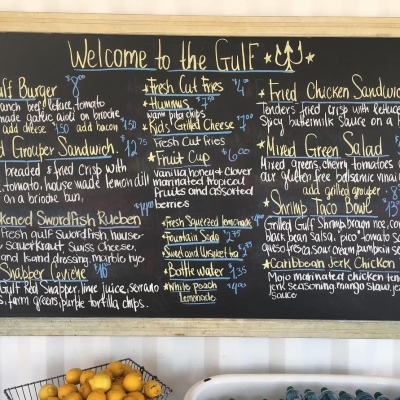 Welcome to the Gulf
Gulf Burger $8.00
ranch beef, lettuce, tomato
made garlic aioli on brioche
add cheese $1.50 add bacon $1.50
Grouper Sandwich. 12.75
breaded & fried crisp with
tomato, house made lemon dill
on a brioche bun,
Blackened Swordfish Rueben $14.00
Fresh gulf swordfish, house
sauerkraut swiss cheese,
and island dressing, marble rye
Snapper Ceviche
Gulf Red Snapper, lime juice, serrano
farm greens, purple tortilla chips..
Fresh Cut Fries $4.00
Hummus $7.50
warm pita chips
Kids Grilled Cheese $7.00
Fresh Cut Fries
Fruit Cup $6.00
vanilla honey & clover
marinated tropical
Fruits and assorted
berries
Fresh Squeezed lemonade
Fountain Soda
Sweet and Unsweet tea
Bottle water
White Peach $4.00
Lemonade
Fried Chicken Sandwich
Tenders fried crisp with lettuce
spicy buttermilk sauce on a
Mixed Green Salad
Mixed greens, cherry tomatoes
our gluten free balsamic
add grilled grouper
Shrimp Taco Bowl
Grilled Gulf Shrimp, brown rice,
black bean salsa, pico
queso fresca, sour cream
Caribbean Jerk Chicken
Mojo marinated chicken
jerk seasoning, mango slaw,
sauce